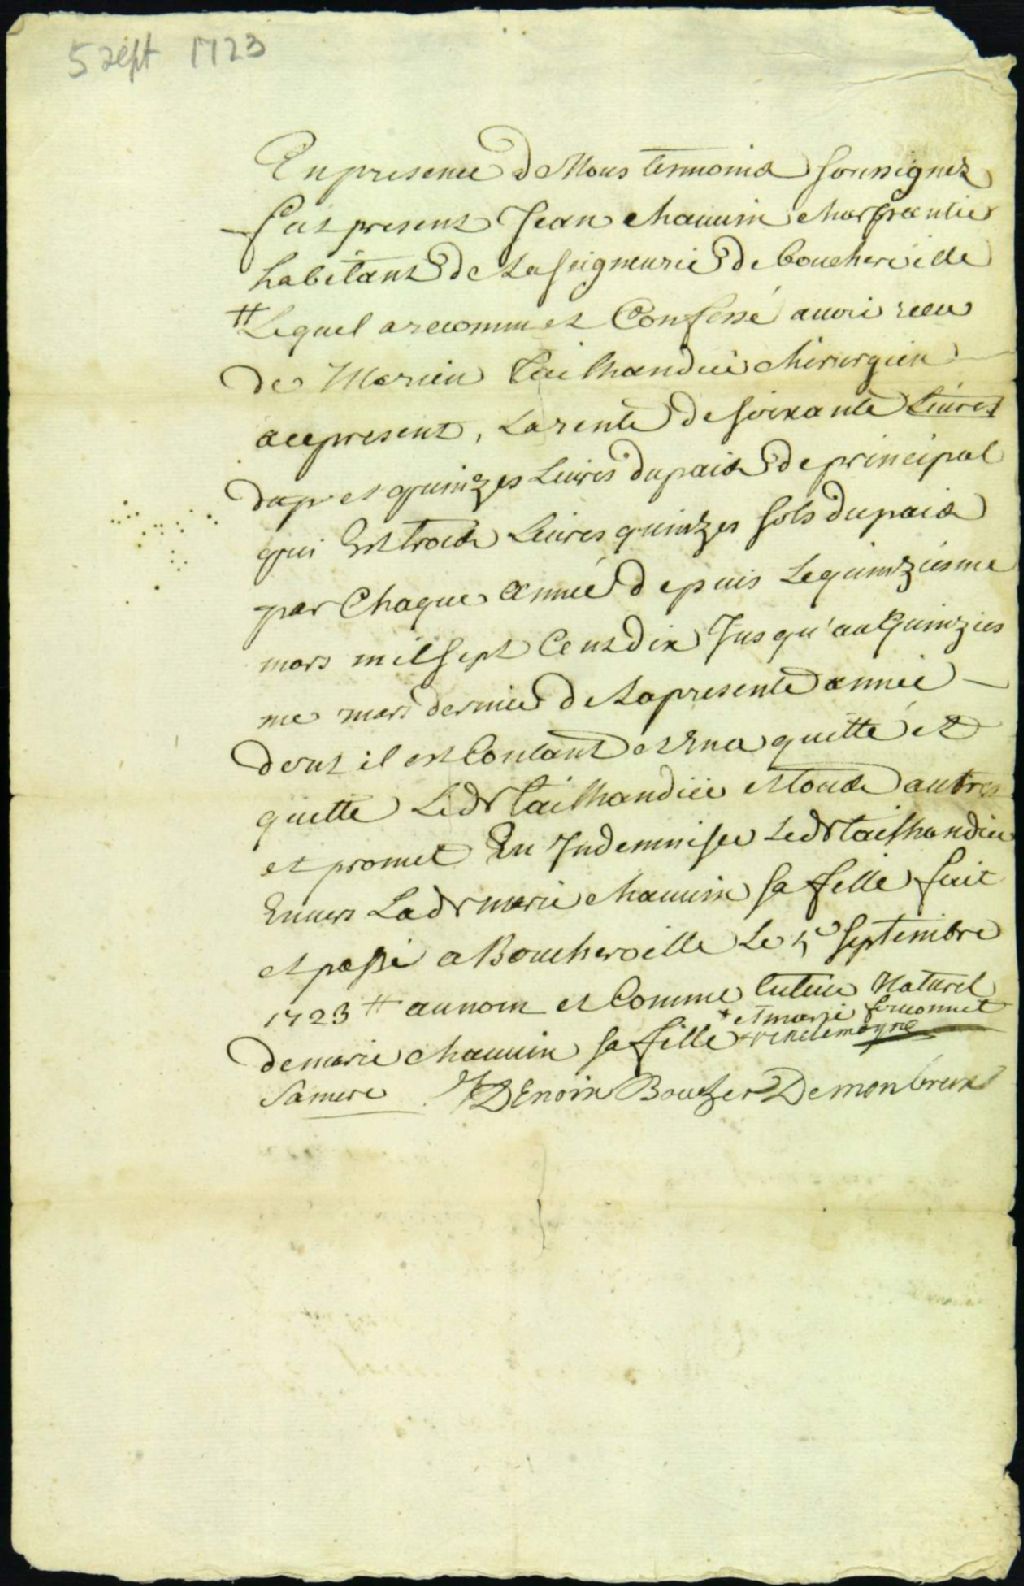 5 sept 1723
En presence de Nous temmoins sousignez
fut present Jean chauuin charpantier
habitant de La seigneurie de boucherville
# Lequel a reconnu et Confessé auoir receu
de Marien Tailhandier chirurgien
acepresent, La rente de soixante Liures
du p et quinzes Liures dupais de principal
qui Est trois Liures quinzes sols dupais
par Chaque année depuis Lequinziesme
mars mil sept Cent dix Jusqu'au Quinzies
me mars dernier de La presente année
dont il est Contant et Ena quitté et
quitte Ledt tailhandier et tous autres
et promet En Indemniser Ledt tailhandier
Enuers Ladt marie chauuin sa fille fait
et passé a Boucherville Le 5e septembre
1723 # aunom et Comme tuteur Naturel
de marie chauuin sa fille + et marie
Sa mere DEnoix Boucher Demonbrun